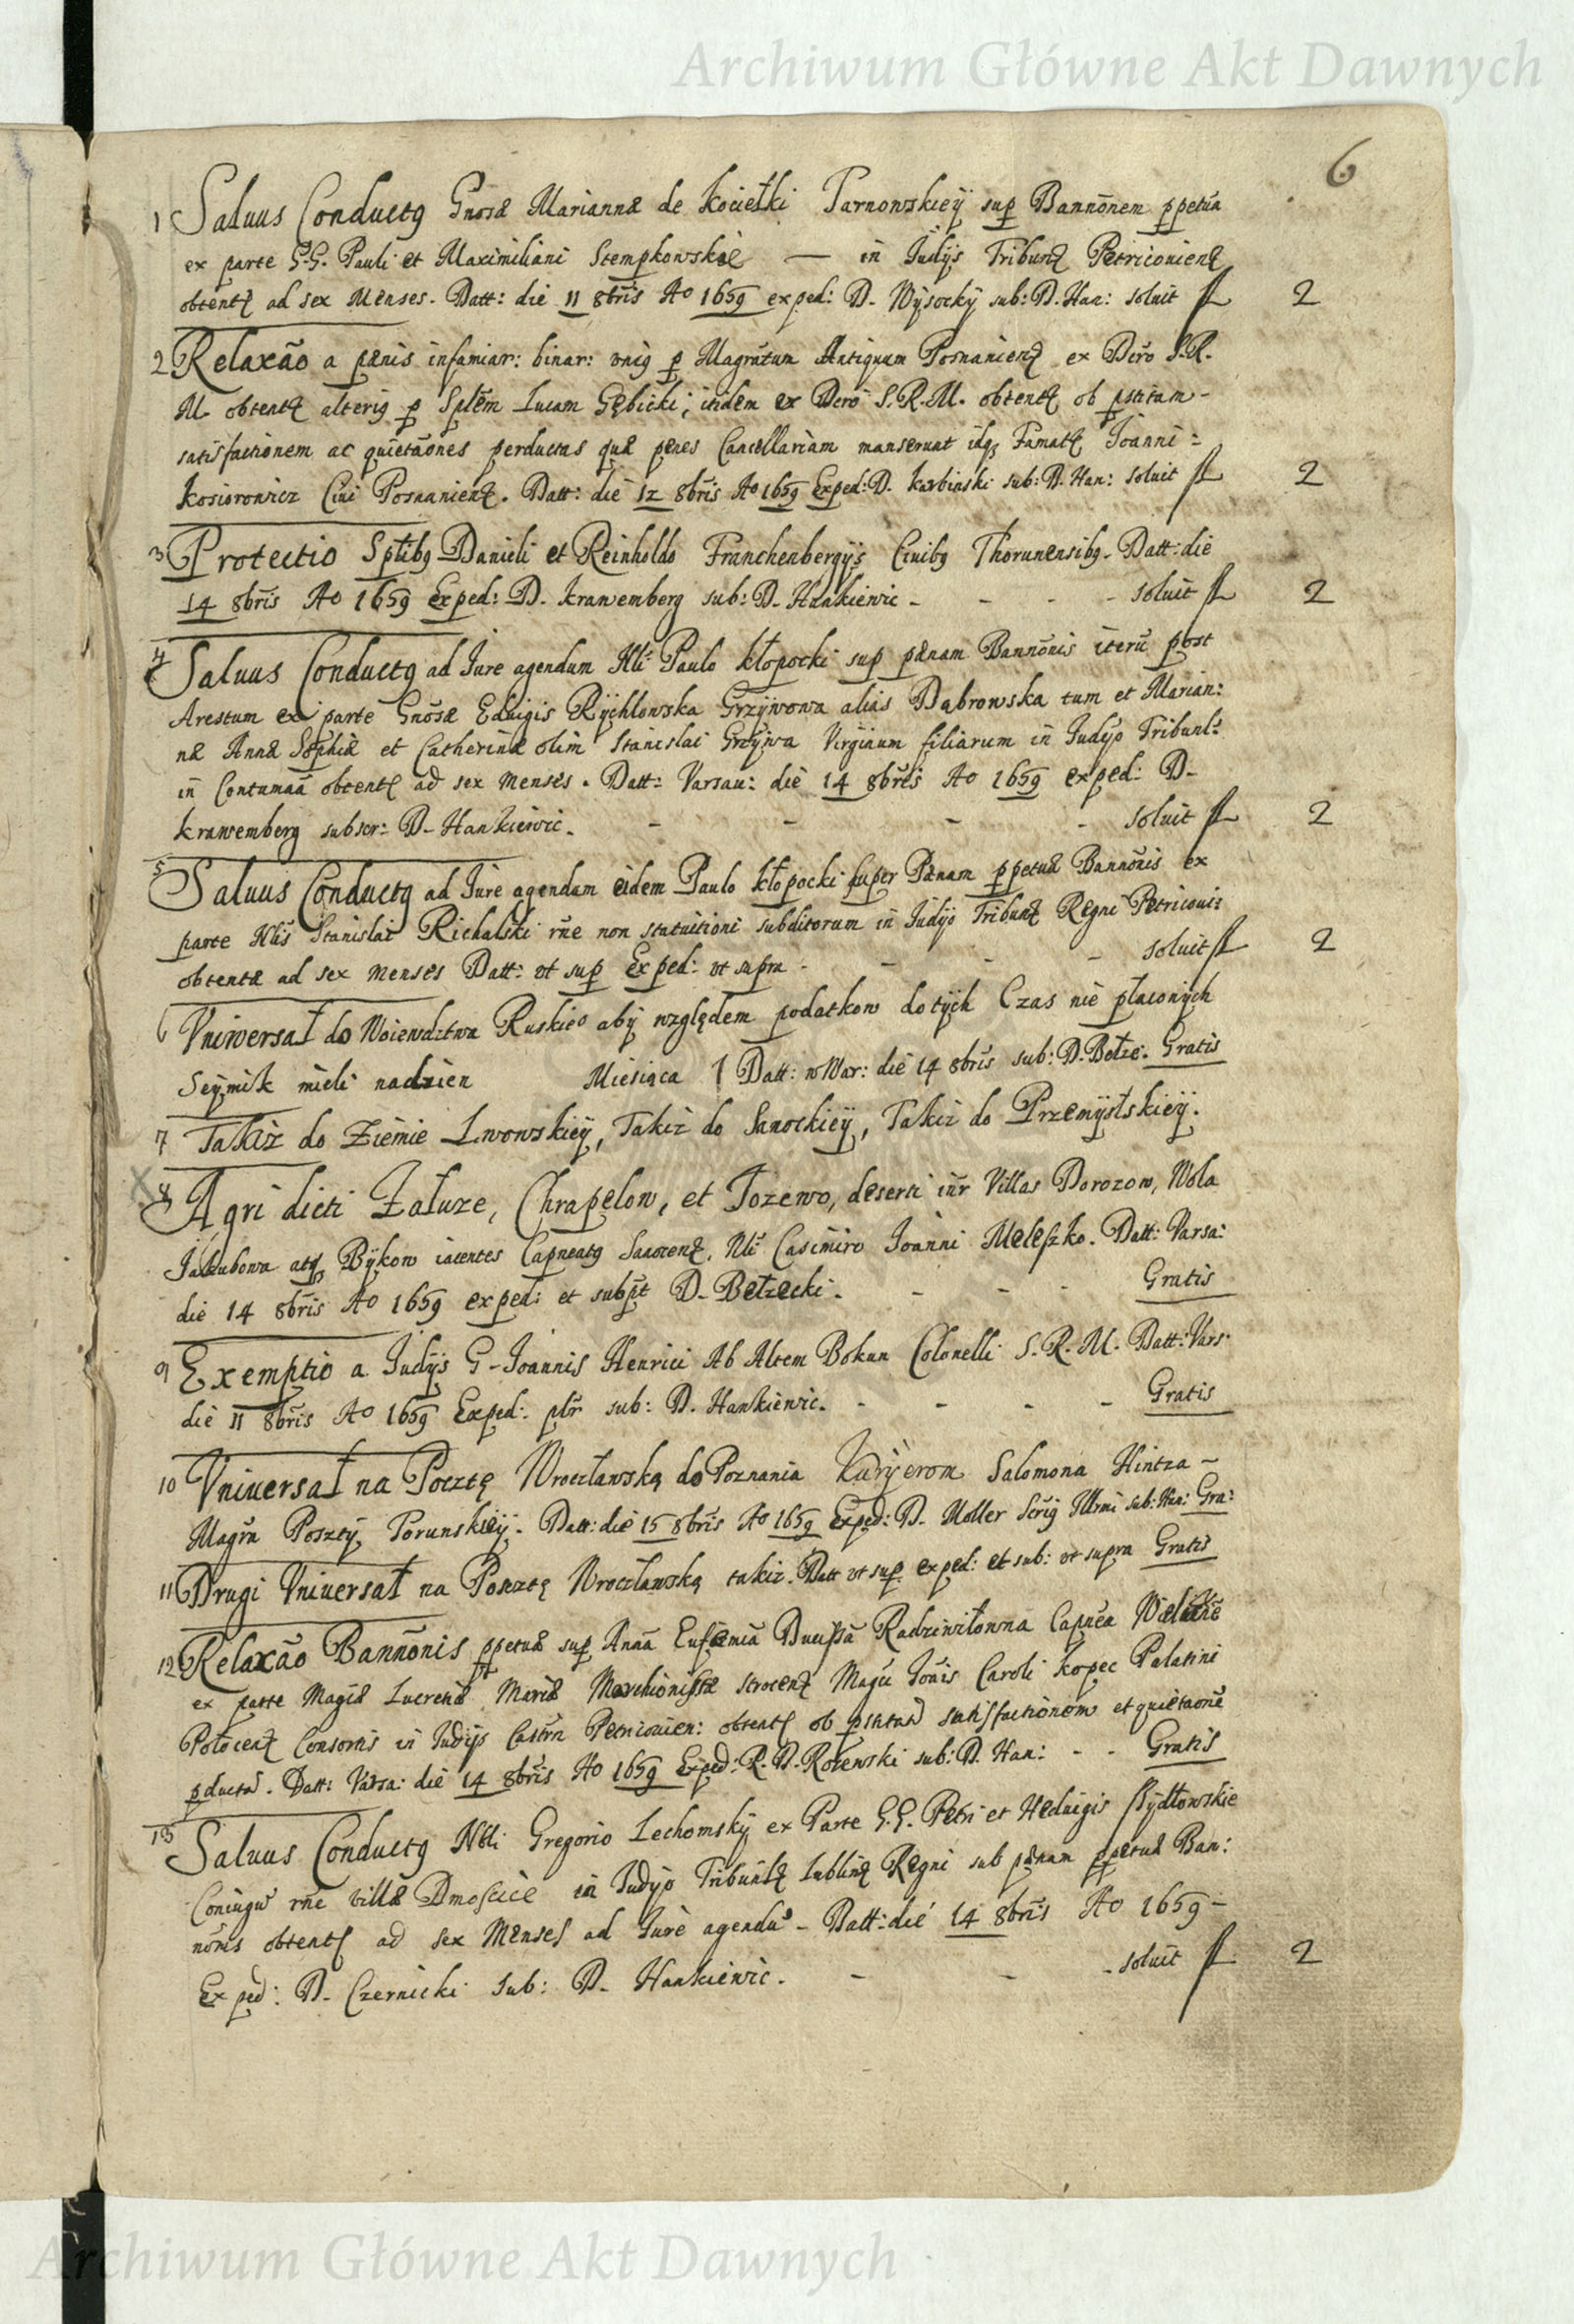 Archiwum Główne Akt Dawnych
6
1 Saluus Conductq Gnosæ Mariannæ de Kocietki Tarnowskieÿ sup Bannōnem ppetūa
ex parte G.G. Pauli et Maximiliani Stempkowskie — in Judÿs Tribunz Petriconienz
obtentz ad sex Menses. Datt: die 11 8bris Ao 1659 exped: D. Wÿsockÿ sub: D. Han: soluit fl 2
2 Relaxāo a pænis infamiar: binar: vniq p Magrātum Antiquum Posnanienz ex Dcro S.R.
M. obtentz alteriq p Spłem Lucam Gębicki, itidem ex Dcro S.R.M. obtentz ob pstitam-
satisfactionem ac quietāones perductas quæ penes Cancellariam manserunt idq Famatz Joanni:
Kosiorowicz Ciui Posnanienz. Datt: die 12 8bris Ao 1659 Exped: D. Karbinski sub: D. Han: soluit fl 2
3 Protectio Spłibq Danieli et Reinholdo Franchenbergÿs Ciuibq Thorunensibq. Datt: die
14 8bris Ao 1659 Exped: D. Krawemberg sub: D. Hankiewic - - - - soluit fl 2
4 Saluus Conductq ad Jure agendum Nłi Paulo Kłopocki sup pænam Bannōnis iterū post
Arestum ex parte Gnōsæ Eduigis Rÿchlowska Grzÿwowa alias Dąbrowska tum et Marian:
næ Annæ Sophiæ et Catherinæ olim Stanislai Grzÿwa Virginum filiarum in Judÿo Tribunl:
in Contumaā obtentz ad sex menses. Datt: Varsau: die 14 8bris Ao 1659 exped: D-
Krawemberg subscr: D- Hankiewic. - - - - soluit fl 2
5 Saluus Conductq ad Jure agendum eidem Paulo Kłopocki super Pænam ppetuæ Bannōnis ex
parte Nłis Stanislai Richalski rne non statuitioni subditorum in Judÿo Tribunz Regni Petricoui:
obtentæ ad sex menses Datt: vt sup Exped: vt supra - - - - soluit fl 2
6 Vniwersał do Woiewdztwa Ruskieo abÿ względem podatkow do tÿch Czas nie płaconÿch
Seÿmik mieli nadzien Miesiąca Datt: w War: die 14 8bris sub: D. Bełze: Gratis
7 Takiż do Ziemie Lwowskieÿ, Takiż do Sanockieÿ, Takiż do Przemÿslskieÿ.
8 Agri dicti Załuze, Chrapelow, et Tozewo, deserti intr Villas Dorozow, Wola
Jakubowa atq Bÿkow iacentes Capneatq Sanocenz. Nłi Casimiro Joanni Meleszko. Datt: Varsa:
die 14 8bris Ao 1659 exped: et subst D- Bełzecki. - - - Gratis
9 Exemptio a Judÿs G- Joannis Henrici Ab Altem Bokun Colonelli S.R.M. Datt: Vars:
die 11 8bris Ao 1659 Exped: plr sub: D. Hankiewic. - - - - Gratis
10 Vniuersał na Pocztę Wrocławską do Poznania Kurÿerom Salomona Hintza -
Magra Posztÿ Torunskieÿ. Datt: die 15 8bris Ao 1659 Exped: D. Moller sub: Han: Gra:
11 Drugi Vniuersał na Posztę Wrocławską takiż. Datt vt sup. exped: et sub: vt supra Gratis
12 Relaxāo Bannōnis ppetuæ sup Annā Eufæmiā Ducissā Radziwiłowna Capnēa
ex parte Magcæ Lucretiæ Mariæ Marchionissæ Strocenz Magci Joāis Caroli Kopec Palatini
Połocenz Consortis in Judÿs Castrn Petricouien: obtentz ob pstitad satisfactionem et quietaonē
pductad. Datt: Varsa: die 14 8bris Ao 1659 Exped: R.D. Rożewski sub: D. Han: - - Gratis
13 Saluus Conductq Nłli Gregorio Lechomskÿ ex Parte G.G. Petri et Heduigis Rÿdłowskie
Coniugū rne villæ Dmoscicie in Judÿo Tribunlz Lublinz Regni sub pænam ppetuæ Ban:
nōnis obtentz ad sex Menses ad Jure agendū - Datt: die 14 8bris Ao 1659 -
Exped: D. Czernicki Sub: D. Hankiewic. - - - soluit fl 2
Archiwum Główne Akt Dawnych